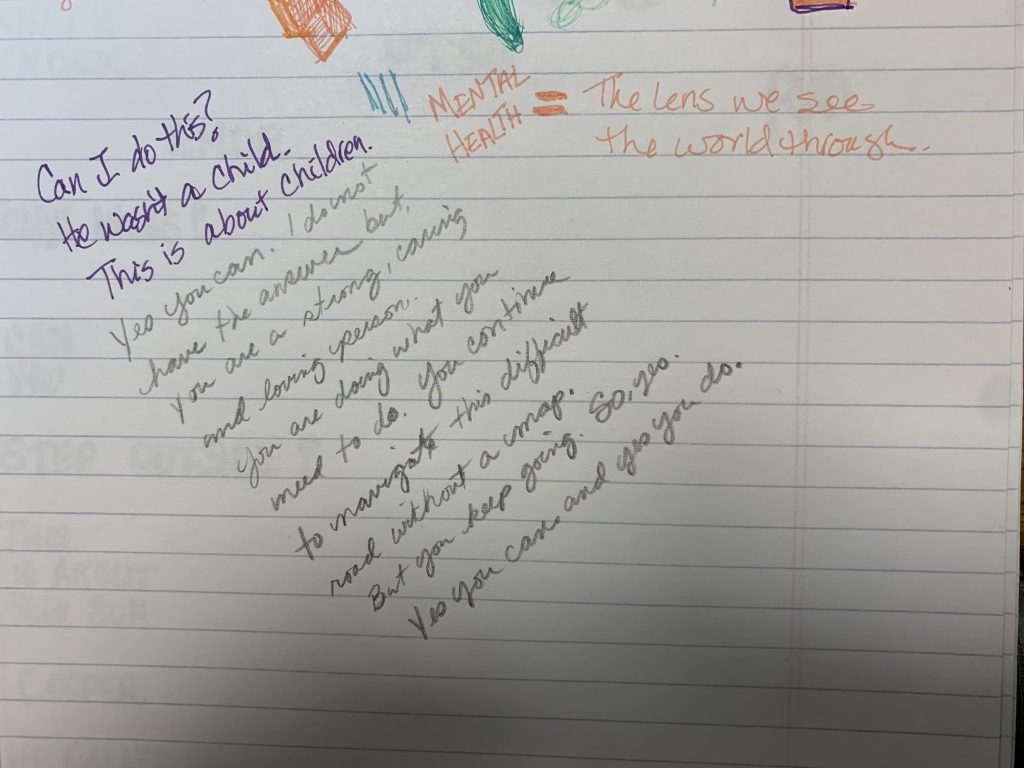 MENTAL
HEALTH = The lens we see
the world through.
Can I do this?
He wasn't a child.
This is about children.
Yes you can. I do not
have the answer but,
you are a strong, caring
and loving person.
You are doing what you
need to do. You continue
to navigate this difficult
road without a map.
But you keep going. So, yes.
Yes you can. and yes you do.